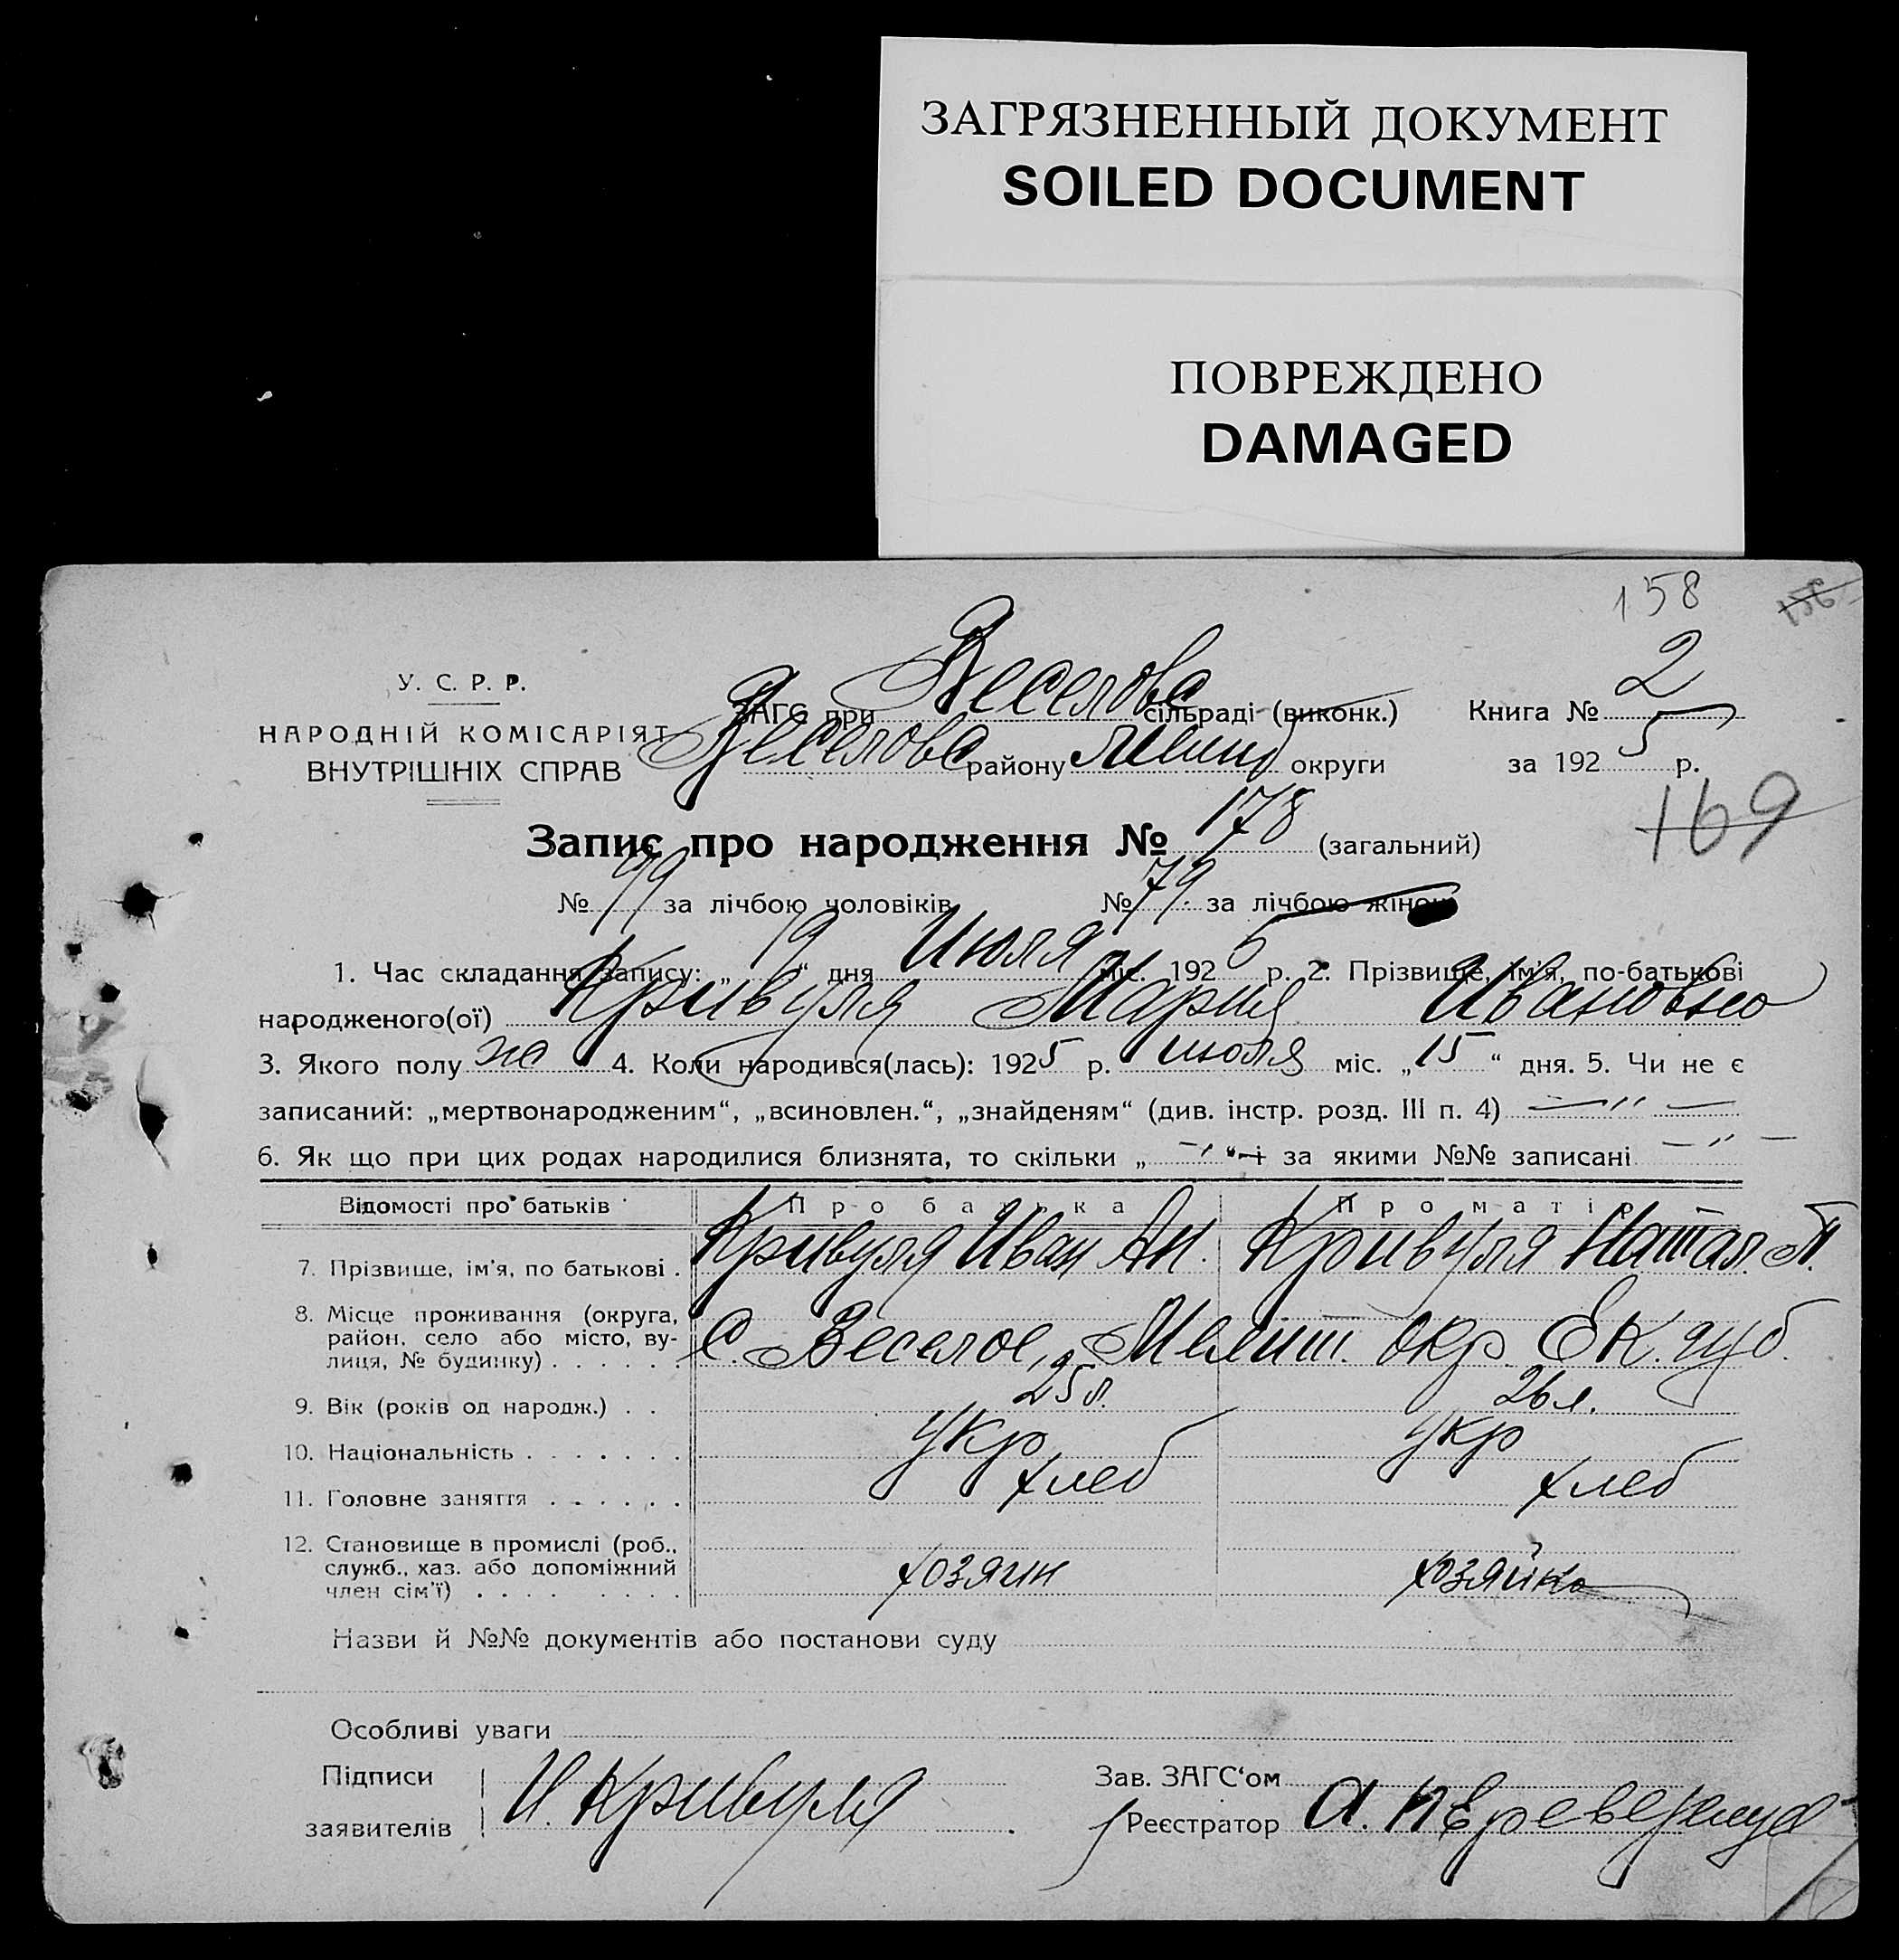 ЗАГРЯЗНЕННЫЙ ДОКУМЕНТ
SOILED DOCUMENT
ПОВРЕЖДЕНО
DAMAGED
158
У. С. Р. Р.
НАРОДНІЙ КОМІСАРІЯТ
ВНУТРІШНІХ СПРАВ
ЗАГС при Веселовс сільраді (виконк.) Книга № 2
Веселовс району Мелит округи за 1925 р.
169
Запис про народження № 178 (загальний)
№ 99 за лічбою чоловіків № 79 за лічбою жінок
1. Час складання запису: „ 19 “ дня Июля міс. 1925 р. 2. Прізвище, ім'я, по-батькові
народженого(ої) Кривуля Мария Ивановна
3. Якого полу жо 4. Коли народився(лась): 1925 р. июля міс. „ 15 “ дня. 5. Чи не є
записаний: „мертвонародженим“, „всиновлен.“, „знайденям“ (див. інстр. розд. III п. 4) — „ —
6. Як що при цих родах народилися близнята, то скільки „ — “ — за якими №№ записані — „ —
Відомості про батьків Про батька Про матір
7. Прізвище, ім'я, по батькові . Кривуля Иван Ан. Кривуля Натал. П.
8. Місце проживання (округа,
район, село або місто, ву-
лиця, № будинку) . . . . . С. Веселое, Мелит. окр. Ек. губ.
9. Вік (років од народж.) . . 25 л. 26 л.
10. Національність . . . . . . . укр укр
11. Головне заняття . . . . . . хлеб хлеб
12. Становище в промислі (роб.,
служб., хаз. або допоміжний
член сім'ї) . . . . . . . . хозяин хозяйка
Назви й №№ документів або постанови суду
Особливі уваги
Підписи
заявителів И. Кривуля
Зав. ЗАГС‘ом
Реєстратор А. Переверзенцев